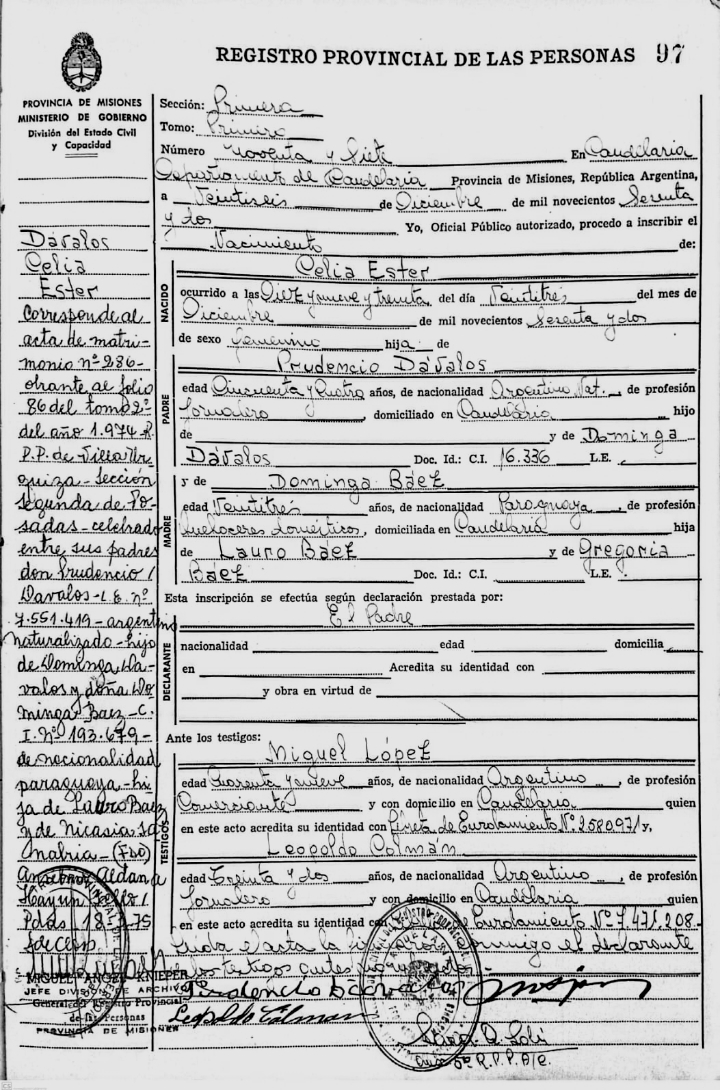 REGISTRO PROVINCIAL DE LAS PERSONAS 97
PROVINCIA DE MISIONES
MINISTERIO DE GOBIERNO
División del Estado Civil
y Capacidad
Dávalos
Celia
Ester
Corresponde al
acta de matri-
monio nº 286-
obrante al folio
86 del tomo 2º
del año 1.974-R.
P.P. de Villa Ur
quiza-Sección
segunda de Po-
sadas-celebrado
entre sus padres
don Prudencio
Davalos-L.E. nº
7.551.419-argentino
naturalizado-hijo
de Dominga Da-
valos y doña Do
minga Baez-C.
I. Nº 193.679-
de nacionalidad
paraguaya-hi
ja de Lauro Baez
y de Nicasia
(FDO)
Aldana
Pdas 18-7-75
MIGUEL ANGEL KNIEPER
JEFE DIVISION DE ARCHIVO
General del Registro Provincial
de las Personas
PROVINCIA DE MISIONES
Sección: Primera
Tomo: Primero
Número Noventa y Siete En Candelaria
Departamento de Candelaria Provincia de Misiones, República Argentina,
a Veintiseis de Diciembre de mil novecientos Setenta
y dos Yo, Oficial Público autorizado, procedo a inscribir el
Nacimiento de:
NACIDO
Celia Ester
ocurrido a las Diez y nueve y treinta del día Veintitrés del mes de
Diciembre de mil novecientos Setenta y dos
de sexo femenino hija de
PADRE
Prudencio Dávalos
edad Cincuenta y Cuatro años, de nacionalidad Argentino Nat. de profesión
Jornalero domiciliado en Candelaria hijo
de y de Dominga
Dávalos Doc. Id.: C.I. 16.336 L.E.
MADRE
y de Dominga Báez
edad Veintitrés años, de nacionalidad Paraguaya de profesión
Quehaceres domésticos, domiciliada en Candelaria hija
de Lauro Báez y de Gregoria
Báez Doc. Id.: C.I. L.E.
Esta inscripción se efectúa según declaración prestada por:
El Padre
DECLARANTE
nacionalidad edad domicilia
en Acredita su identidad con
y obra en virtud de
Ante los testigos:
TESTIGOS
Miguel López
edad Cuarenta y nueve años, de nacionalidad Argentino, de profesión
Comerciante y con domicilio en Candelaria quien
en este acto acredita su identidad con Libreta de Enrolamiento Nº 2580971 y,
Leopoldo Colmán
edad Treinta y dos años, de nacionalidad Argentino, de profesión
Jornalero y con domicilio en Candelaria quien
en este acto acredita su identidad con de Enrolamiento Nº 7.471.208-
el acta la conmigo el declarante
testigos
Leopoldo Colman